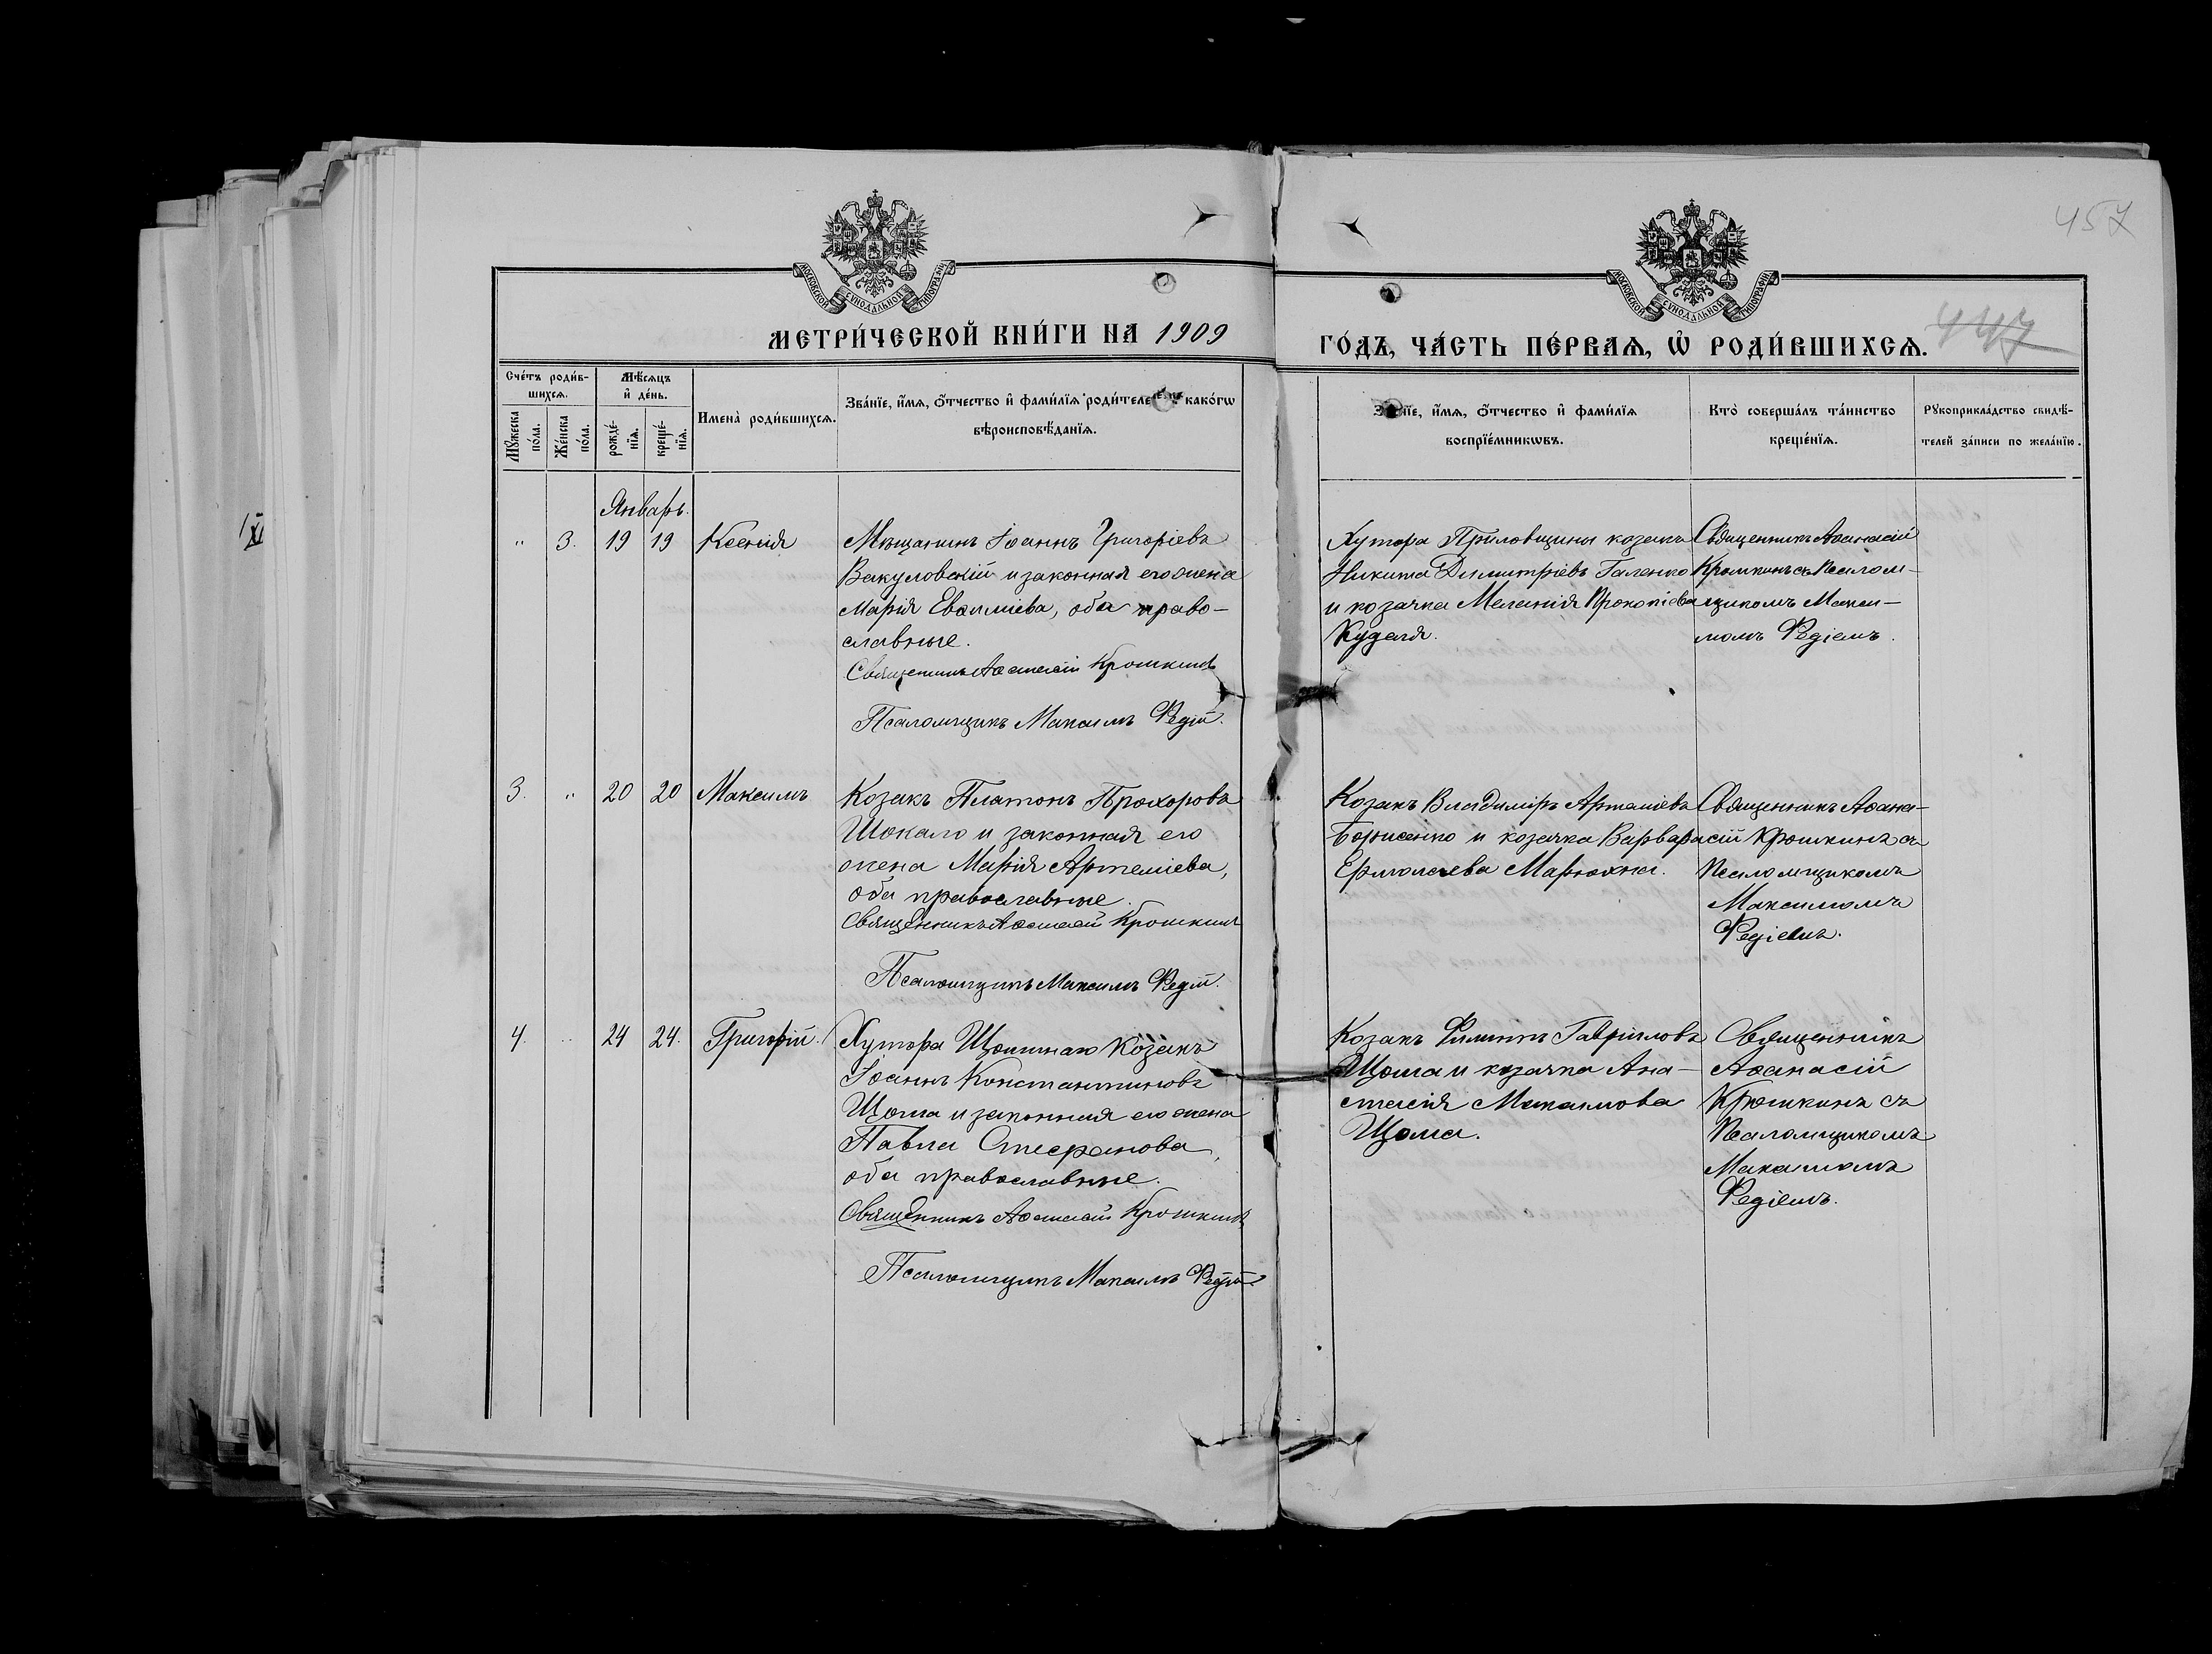 457
МОСКОВСКОЙ СѴНОДАЛЬНОЙ ТИПОГРАФІИ
МОСКОВСКОЙ СѴНОДАЛЬНОЙ ТИПОГРАФІИ
МЕТРИ́ЧЕСКОЙ КНИ́ГИ НА 1909
ГО́ДЪ, ЧА́СТЬ ПЕ́РВАѦ, Ѡ҆ РОДИ́ВШИХСѦ.
447
Сче́тъ роди́в-
шихсѧ.
Мꙋ́жеска по́ла.
Же́нска по́ла.
Мѣ́сѧцъ
и҆ де́нь.
рожде́-
нїѧ.
креще́-
нїѧ.
Имена̀ роди́вшихсѧ.
Зва́нїе, и҆́мѧ, ѻ҆́тчество и҆ фами́лїѧ роди́теле како́гѡ
вѣроисповѣ́данїѧ.
и҆́мѧ, ѻ҆́тчество и҆ фами́лїѧ
воспрїе́мникѡвъ.
Кто̀ соверша́лъ та́инство
креще́нїѧ.
Рꙋкоприкла́дство свидѣ́-
телей за́писи по жела́нїю.
Январь.
" 3. 19 19 Ксенія
Мѣщанинъ Іоаннъ Григоріевъ
Вакуловскій и законная его жена
Марія Евѳиміева, оба право-
славные.
Священникъ Аѳанасій Крошкинъ
Псаломщикъ Максимъ Редій.
Хутора козакъ
Никита Димитріевъ Галенко
и козачка Меланія Прокопіева
Кудаля.
Священникъ Аѳанасій
Крошкинъ съ Псалом-
щикомъ Макси-
момъ Редіемъ.
3. " 20 20 Максимъ
Козакъ Платонъ Прохоровъ
Шокало и законная его
жена Марія Артеміева,
оба православные.
Священникъ Аѳанасій Крошкинъ
Псаломщикъ Максимъ Редій.
Козакъ Владиміръ Артеміевъ
Борисенко и козачка Варвара
Ермолаева Марюхна.
Священникъ Аѳана-
сій Крошкинъ съ
Псаломщикомъ
Максимомъ
Редіемъ.
4. " 24 24. Григорій.
Хутора козакъ
Іоаннъ Константиновъ
Щома и законная его жена
Павла Стефанова,
оба православные.
Священникъ Аѳанасій Крошкинъ
Псаломщикъ Максимъ Редій.
Козакъ Филиппъ Гавриловъ
Щома и козачка Ана-
стасія Максимова
Щома.
Священникъ
Аѳанасій
Крошкинъ съ
Псаломщикомъ
Максимомъ
Редіемъ.